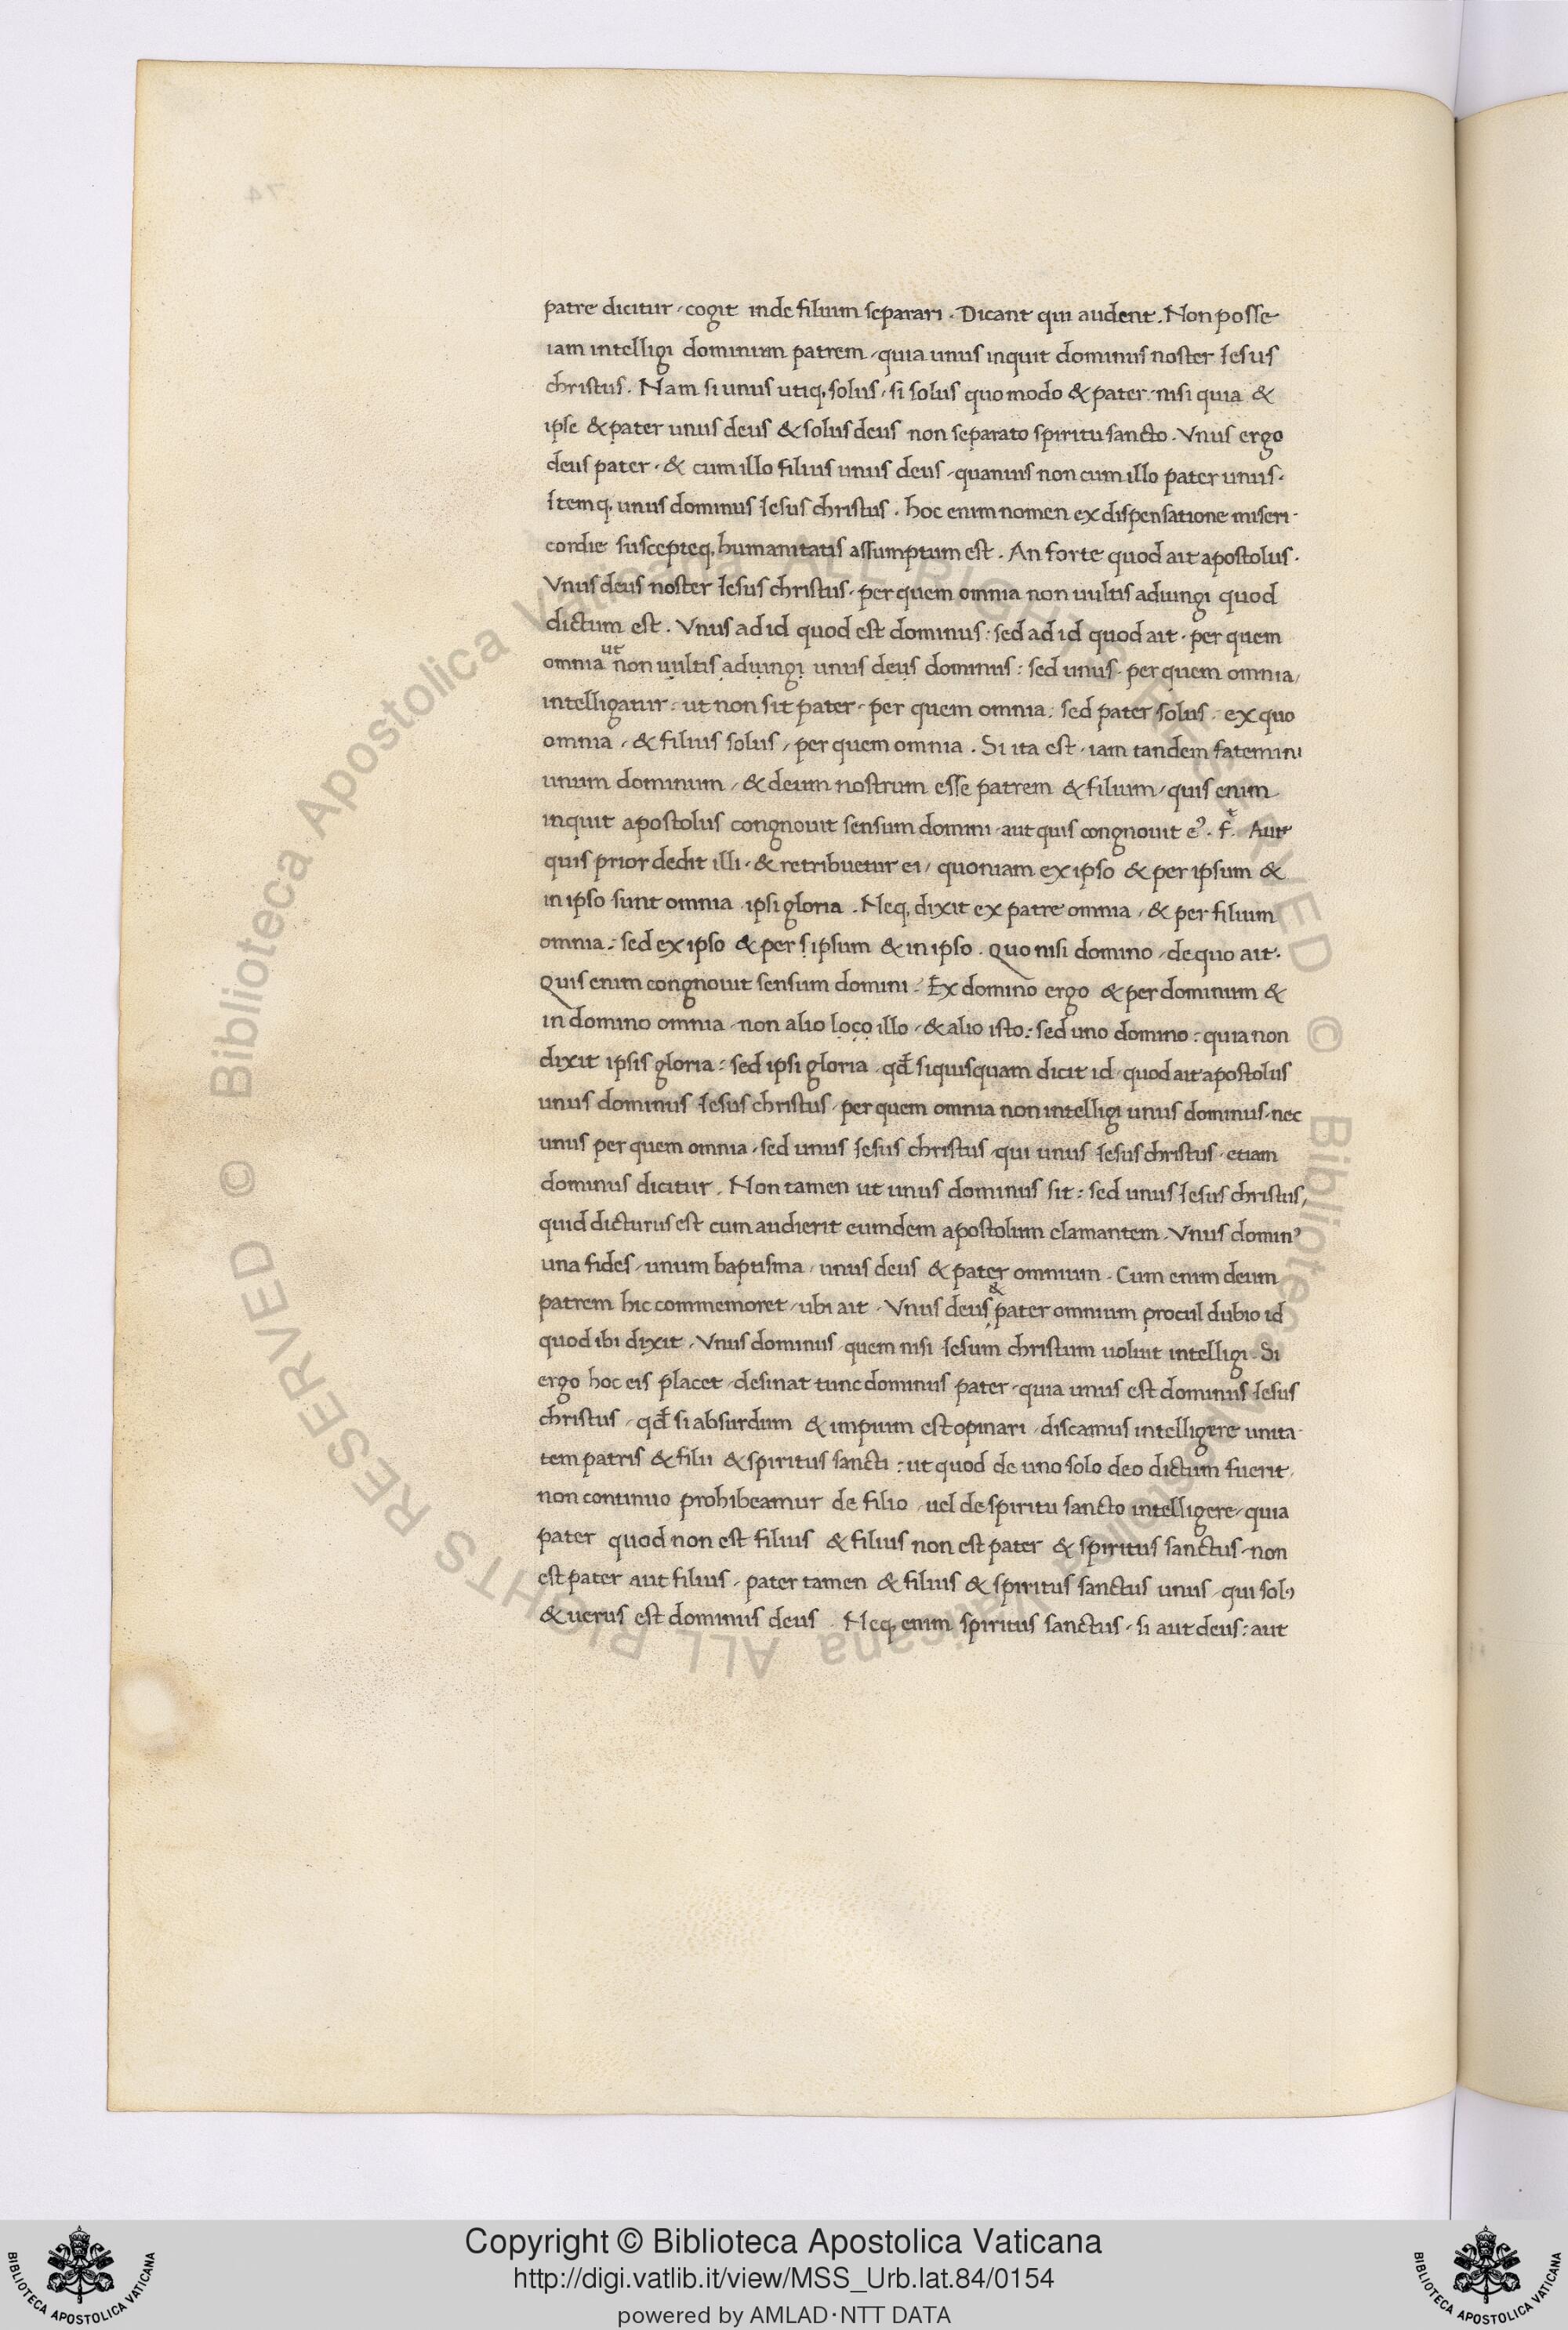 patre dicitur, cogit inde filium separari. Dicant qui audent. Non posse
iam intelligi dominum patrem, quia unus inquit dominus noster Iesus
christus. Nam si unus utiq, solus, si solus quomodo & pater, nisi quia &
ipse & pater unus deus & solus deus non separato spiritu sancto. Vnus ergo
deus pater, & cum illo filius unus deus, quamuis non cum illo pater unus.
Itemq, unus dominus Iesus christus. hoc enim nomen ex dispensatione miseri-
cordie suscepteq, humanitatis assumptum est. An forte quod ait apostolus.
Vnus deus noster Iesus christus, per quem omnia non uultis adiungi quod
dictum est. Vnus ad id quod est dominus: sed ad id quod ait, per quem
ut
omnia non uultis adiungi unus deus dominus: sed unus, per quem omnia,
intelligatur: ut non sit pater, per quem omnia: sed pater solus, ex quo
omnia, & filius solus, per quem omnia. Si ita est, iam tandem fatemini
unum dominum, & deum nostrum esse patrem & filium, quis enim
inquit apostolus congnouit sensum domini, aut quis congnouit Aut
quis prior dedit illi, & retribuetur ei, quoniam ex ipso & per ipsum &
in ipso sunt omnia ipsi gloria. Neq, dixit ex patre omnia, & per filium
omnia: sed ex ipso & per sipsum & in ipso. Quo nisi domino, de quo ait.
Quis enim congnouit sensum domini: Ex domino ergo & per dominum &
in domino omnia, non alio loco illo, & alio isto: sed uno domino: quia non
dixit ipsis gloria: sed ipsi gloria, qđ siquisquam dicit id, quod ait apostolus
unus dominus Iesus christus, per quem omnia non intelligi unus dominus, nec
unus per quem omnia, sed unus Iesus christus, qui unus Iesus christus, etiam
dominus dicitur. Non tamen ut unus dominus sit: sed unus Iesus christus,
quid dicturus est cum audierit eumdem apostolum clamantem. Vnus domin⁹
una fides, unum baptisma, unus deus & pater omnium. Cum enim deum
&
patrem hic commemoret, ubi ait. Vnus deus pater omnium procul dubio id
quod ibi dixit, Vnus dominus, quem nisi Iesum christum uoluit intelligi. Si
ergo hoc eis placet, desinat tunc dominus pater, quia unus est dominus Iesus
christus, qđ si absurdum & impium est opinari, discamus intelligere unita-
tem patris & filii & spiritus sancti: ut quod de uno solo deo dictum fuerit,
non continuo prohibeamur de filio, uel de spiritu sancto intelligere, quia
pater quod non est filius & filius non est pater & spiritus sanctus, non
est pater aut filius, pater tamen & filius & spiritus sanctus unus, qui sol⁹
& uerus est dominus deus. Neq, enim spiritus sanctus, si aut deus: aut
Copyright © Biblioteca Apostolica Vaticana
http://digi.vatlib.it/view/MSS_Urb.lat.84/0154
powered by AMLAD·NTT DATA
BIBLIOTECA APOSTOLICA VATICANA
BIBLIOTECA APOSTOLICA VATICANA